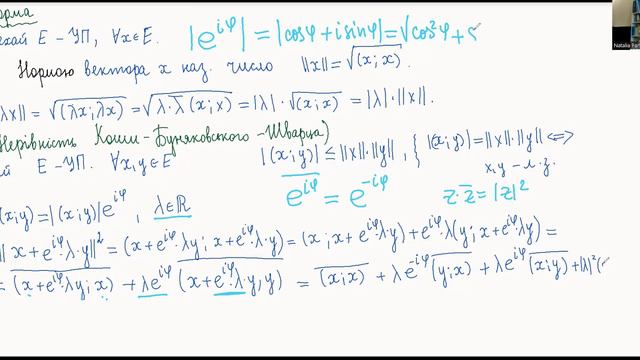 орма
ехай E – УП, ∀x∈E. |e^{iφ}| = |cosφ + i sinφ| = √cos²φ +
Нормою вектора x наз. число ||x|| = √(x;x).
λx|| = √(λx;λx) = √λ·λ̅(x;x) = |λ|·√(x;x) = |λ|·||x||.
Нерівність Коши-Буняковского-Шварца)
ай E – УП. ∀x,y∈E |(x;y)| ≤ ||x||·||y||, { |(x;y)| = ||x||·||y|| ⟺
x,y – л.з.
\overline{e^{iφ}} = e^{-iφ} z·z̅ = |z|²
(x;y) = |(x;y)|e^{iφ}, λ∈ℝ
|| x + e^{iφ}·λ·y||² = (x + e^{iφ}·λy; x + e^{iφ}·λ·y) = (x; x + e^{iφ}·λ·y) + e^{iφ}·λ(y; x + e^{iφ}λy) =
= \overline{(x + e^{iφ}·λy; x)} + λe^{iφ}\overline{(x + e^{iφ}·λ·y; y)} = \overline{(x;x)} + λe^{-iφ}\overline{(y;x)} + λe^{iφ}\overline{(x;y)} + |λ|²(
Natalia